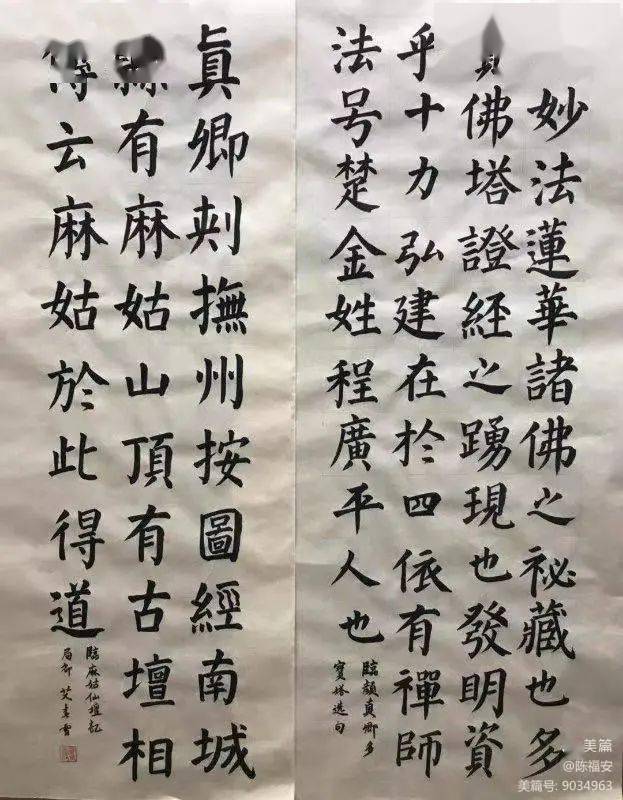 妙法蓮華諸佛之祕藏也多
佛塔證經之踴現也發明資
乎十力弘建在於四依有禪師
法号楚金姓程廣平人也
臨顏真卿多
寶塔選句
眞卿刾撫州按圖經南城
縣有麻姑山頂有古壇相
傳云麻姑於此得道
臨麻姑仙壇記
局部
美篇
@陈福安
美篇号: 9034963